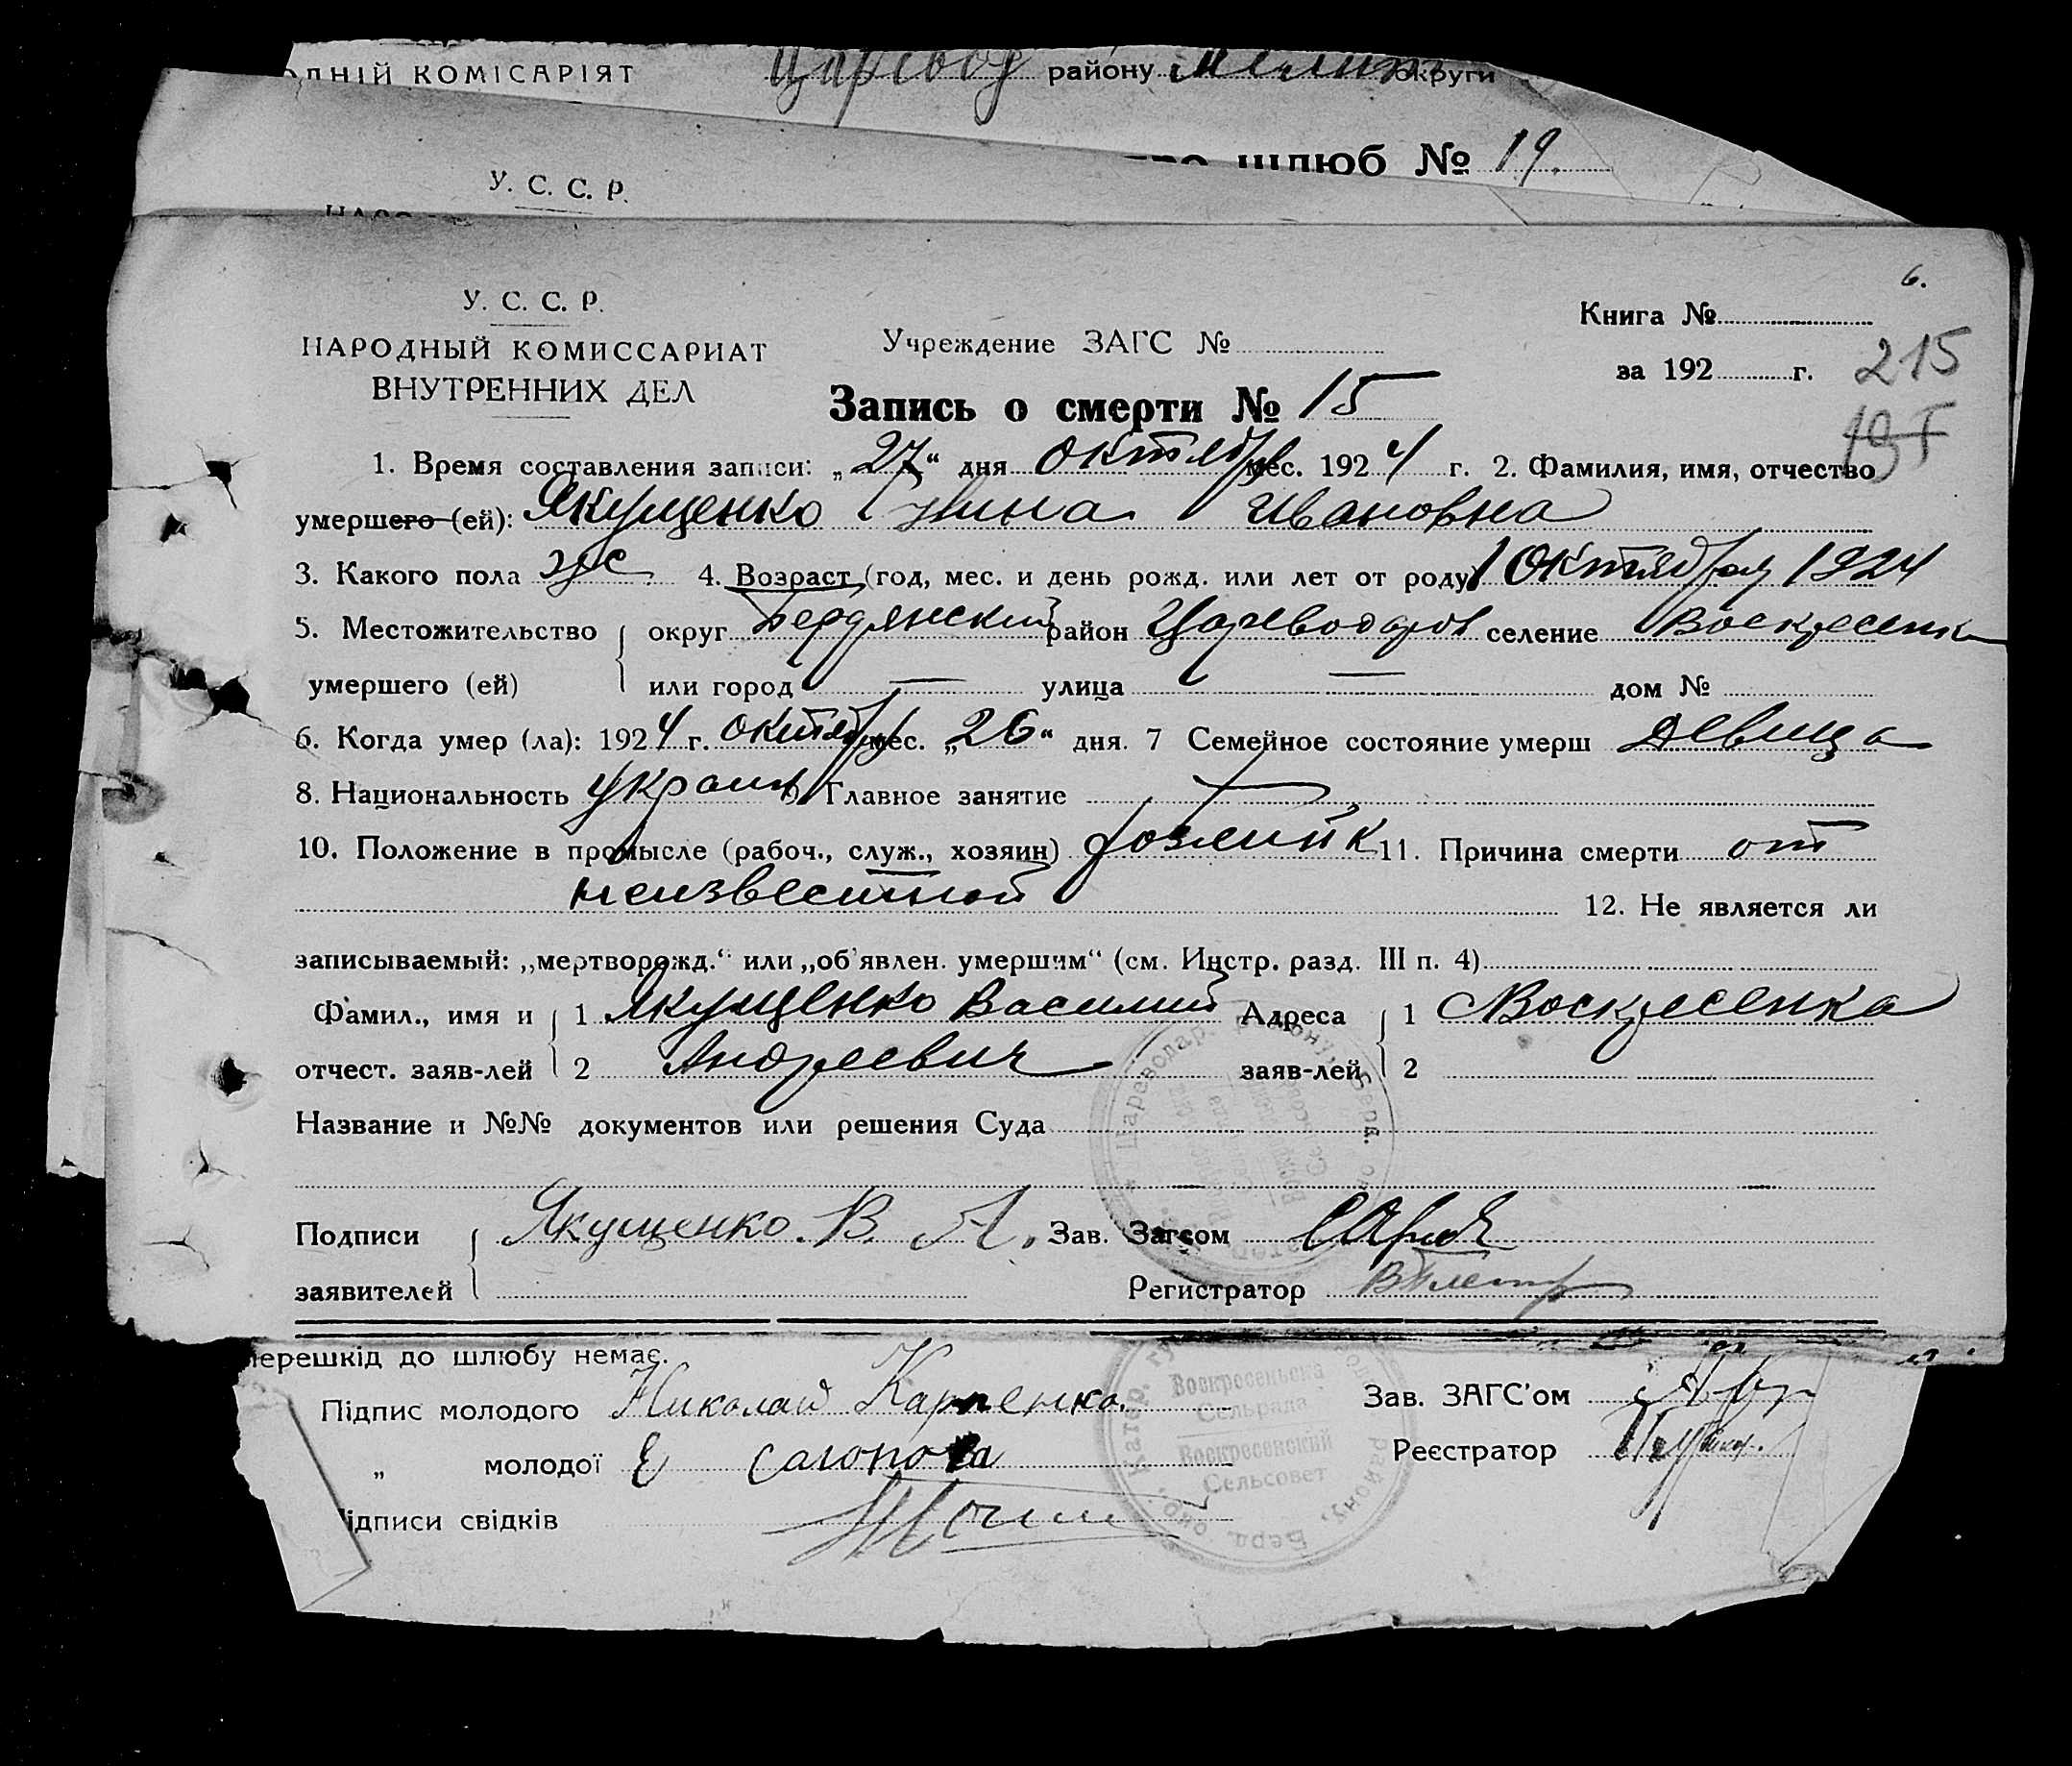 ОДНІЙ КОМІСАРІЯТ Царевод району Мелит округи
шлюб № 19.
У. С. С. Р.
6.
У. С. С. Р.
Книга №
НАРОДНЫЙ КОМИССАРИАТ Учреждение ЗАГС №
за 192 г. 215
ВНУТРЕННИХ ДЕЛ
Запись о смерти № 15
1. Время составления записи: „27“ дня октября мес. 1924 г. 2. Фамилия, имя, отчество
умершего (ей): Якущенко Нина Ивановна
3. Какого пола жс 4. Возраст (год, мес. и день рожд. или лет от роду) 1 Октября 1924
5. Местожительство округ Бердянский район Цареводаров селение Воскресенка
умершего (ей) или город — улица — дом №
6. Когда умер (ла): 1924 г. октября мес. „26“ дня. 7 Семейное состояние умерш девица
8. Национальность украин 9. Главное занятие
10. Положение в промысле (рабоч., служ., хозяин) хозяйк 11. Причина смерти от
неизвестной 12. Не является ли
записываемый: „мертворожд.“ или „об'явлен. умершим“ (см. Инстр. разд. III п. 4)
Фамил., имя и 1 Якущенко Василий Адреса 1 Воскресенка
отчест. заяв-лей 2 Андреевич заяв-лей 2
Название и №№ документов или решения Суда
Подписи Якущенко. В. А. Зав. Загсом
заявителей Регистратор
перешкід до шлюбу немає.
Підпис молодого Николай Карпенко. Зав. ЗАГС'ом
„ молодої Реєстратор
ідписи свідків
Воскресеньска
Сельрада
Воскресенский
Сельсовет
району, Берд. окр. Катер. гу